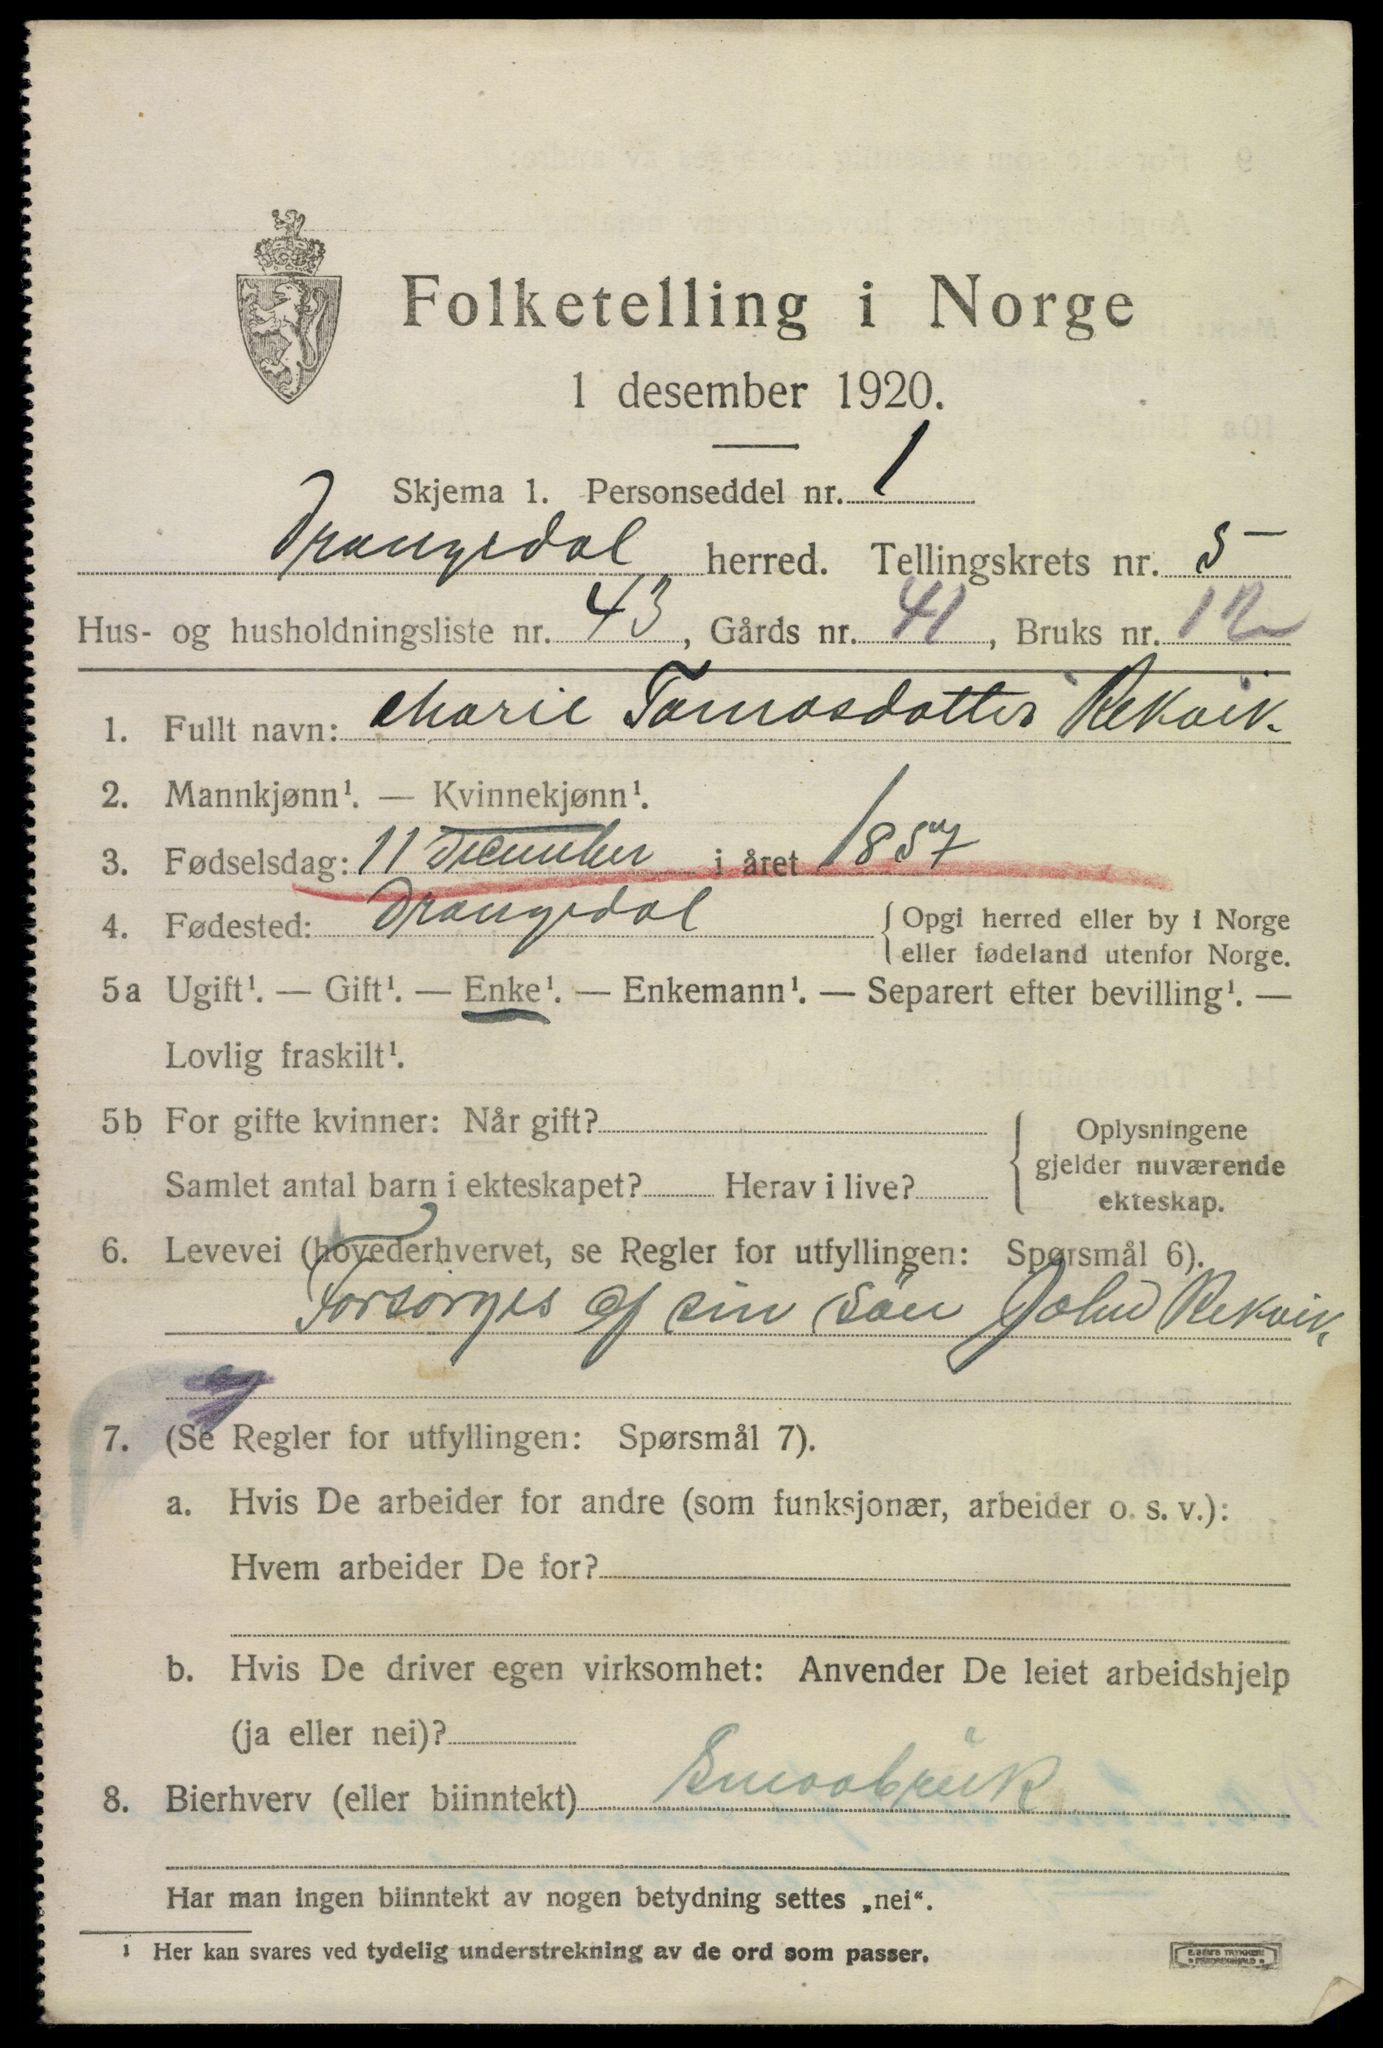 Folketelling i Norge
1 desember 1920.
Skjema 1. Personseddel nr. 1
Drangedal herred. Tellingskrets nr. 5
Hus- og husholdningsliste nr. 43, Gårds nr. 41, Bruks nr. 12
1. Fullt navn: Marie Tomasdatter Rekvik.
2. Mannkjønn¹. — Kvinnekjønn¹.
3. Fødselsdag: 11 December i året 1857
4. Fødested: Drangedal { Opgi herred eller by i Norge
eller fødeland utenfor Norge.
5a Ugift¹. — Gift¹. — Enke¹. — Enkemann¹. — Separert efter bevilling¹. —
Lovlig fraskilt¹.
5b For gifte kvinner: Når gift? { Oplysningene
gjelder nuværende
ekteskap.
Samlet antal barn i ekteskapet? Herav i live?
6. Levevei (hovederhvervet, se Regler for utfyllingen: Spørsmål 6).
Forsørges af sin søn John Rekvik
7. (Se Regler for utfyllingen: Spørsmål 7).
a. Hvis De arbeider for andre (som funksjonær, arbeider o. s. v.):
Hvem arbeider De for?
b. Hvis De driver egen virksomhet: Anvender De leiet arbeidshjelp
(ja eller nei)?
8. Bierhverv (eller biinntekt) Smaabruk
Har man ingen biinntekt av nogen betydning settes „nei“.
¹ Her kan svares ved tydelig understrekning av de ord som passer.